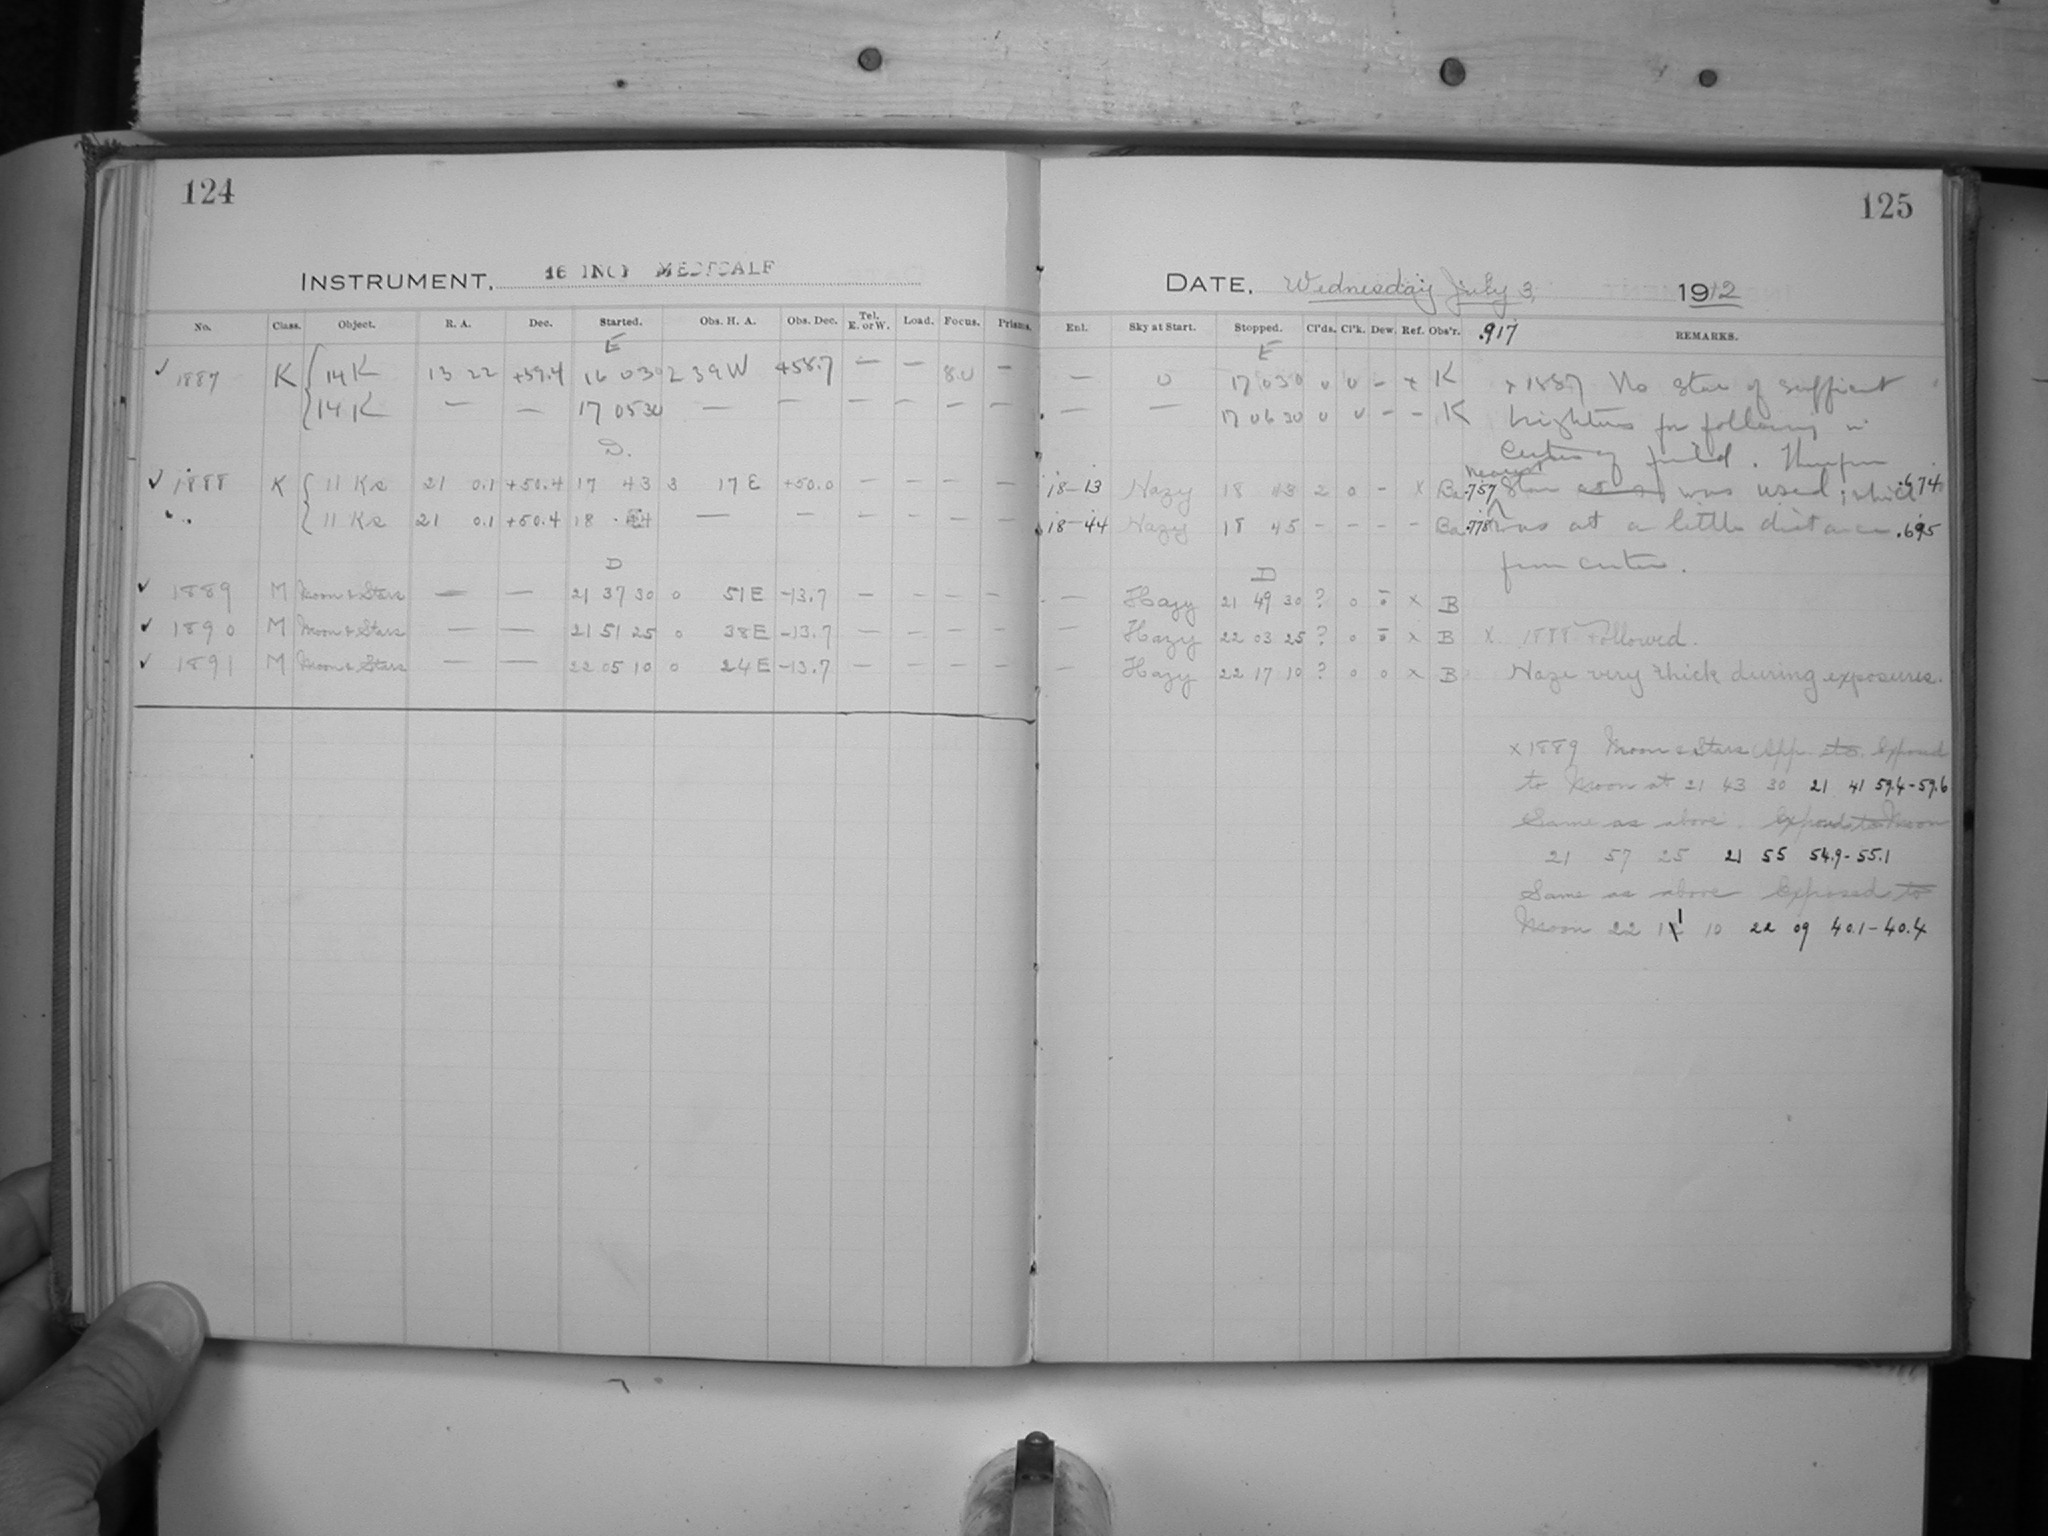 124
INSTRUMENT. 16 INCH METCALF
No. Class. Object. R. A. Dec. Started. Obs. H. A. Obs. Dec. Tel. E. or W. Load. Focus. Prisms.
E
✓ 1887 K { 14 K 13 22 +59.4 16 0 30 2 39 W +58.7 — — 8.0 —
{ 14 K — — 17 05 30 — — — — — —
D.
✓ 1888 K { 11 Ks 21 0.1 +50.4 17 43 3 17 E +50.0 — — — —
" { 11 Ks 21 0.1 +50.4 18 44 — — — — — —
D
✓ 1889 M Moon & Stars — — 21 37 30 0 51 E -13.7 — — — —
✓ 1890 M Moon & Stars — — 21 51 25 0 38 E -13.7 — — — —
✓ 1891 M Moon & Stars — — 22 05 10 0 24 E -13.7 — — — —
125
DATE. Wednesday July 3, 1912
Enl. Sky at Start. Stopped. Cl'ds. Cl'k. Dew. Ref. Obs'r. .917 REMARKS.
E
— 0 17 0 30 0 0 - x K x 1887 No star of sufficient
— — 17 06 30 0 0 - - K brightness for following in
center of field. Therefore
nearest
18-13 Hazy 18 43 2 0 - x Ba .757 star was used; which .674
18-44 Hazy 18 45 - - - - Ba .778 was at a little distance .695
from center.
D
— Hazy 21 49 30 ? 0 0 x B
— Hazy 22 03 25 ? 0 0 x B x 1888 Followed.
— Hazy 22 17 10 ? 0 0 x B Haze very thick during exposures.
x 1889 Moon & Stars App. Exposed
to Moon at 21 43 30 21 41 59.4-59.6
Same as above. Exposed to Moon
21 57 25 21 55 54.9-55.1
Same as above Exposed to
Moon 22 11 10 22 09 40.1-40.4